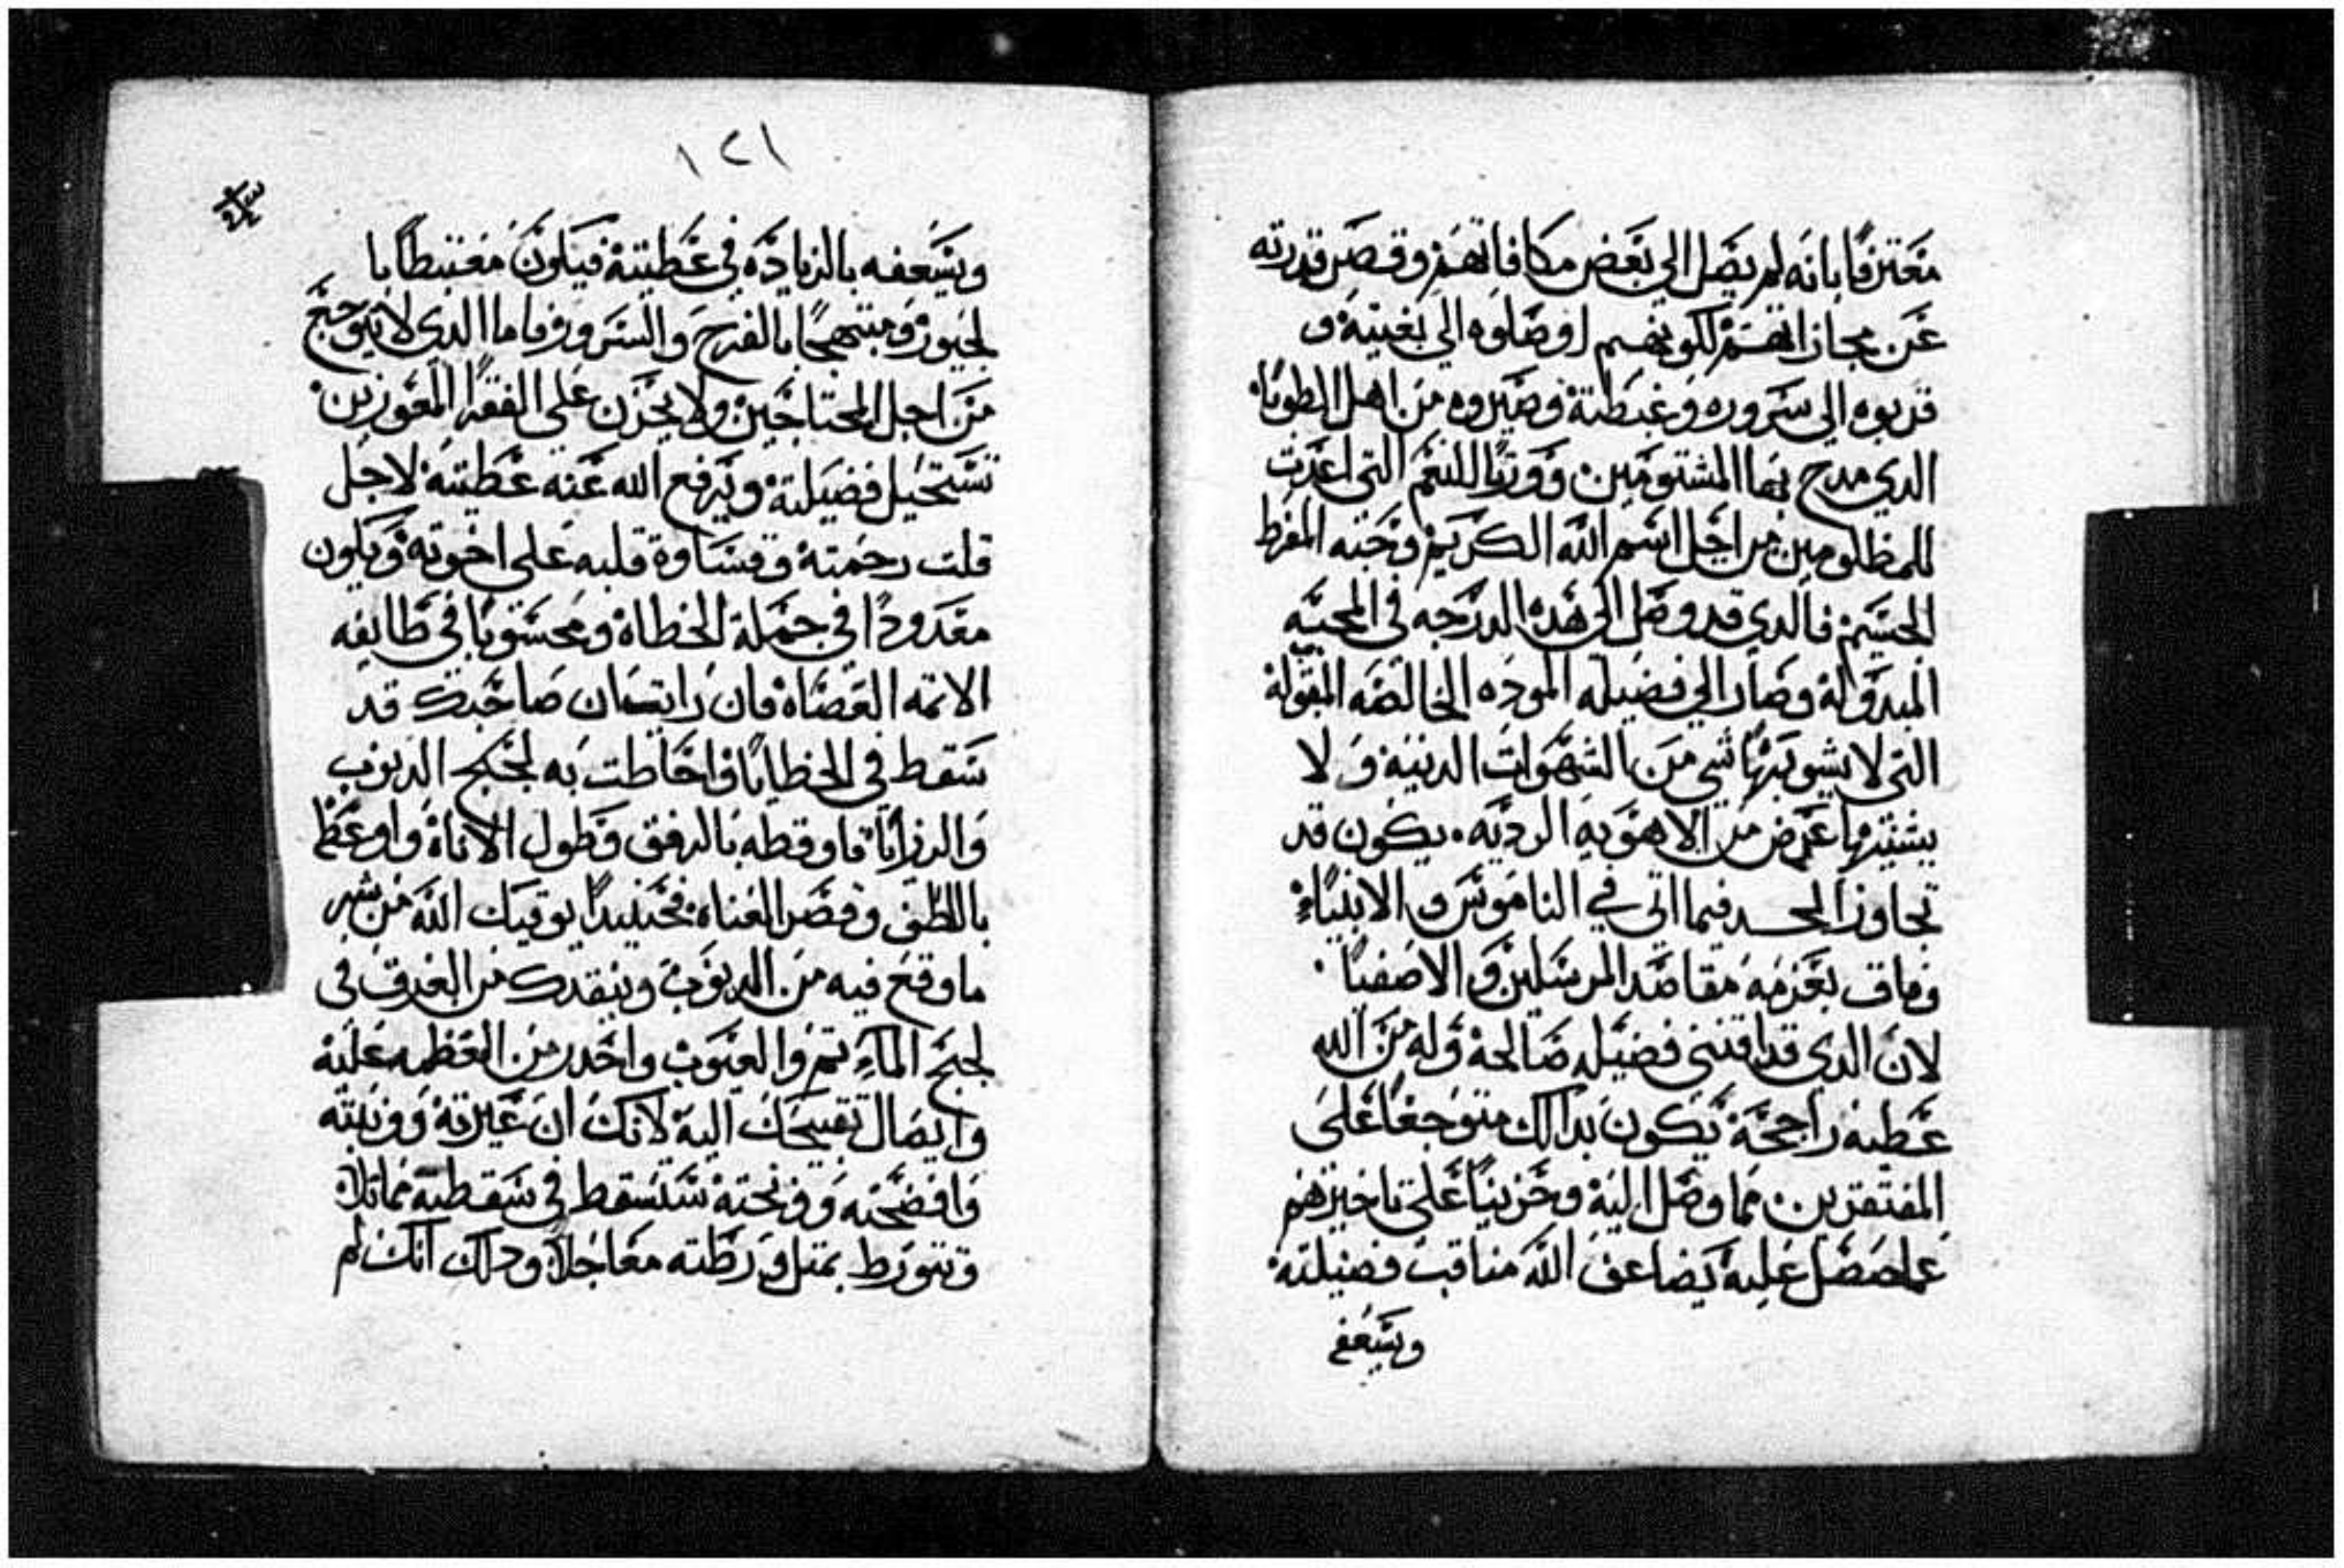 معترفًا بانه لم يصل الي بعض مكافاتهم وقصر قدرته
عن مجازاتهم لكونهم اوصلوه الي بغيته و
قربوه الي سروره وغبطته وصيروه من اهل الطوبا
الدي مدح بها المشتومين وورتا للنعم التي اعدت
للمظلومين من اجل اسم الله الكريم وحبه المفرط
الجسيم فالدي قد وصل الي هده الدرجه في المحبه
المبدوله وصار الي فضيله الموده الخالصه المقوله
التي لا يشوبها شي من الشهوات الدنيه ولا
يشينها عرض من الاهويه الرديه . يكون قد
تجاوز الحد فيما اتي في الناموس والانبياء
وفاق بعزمه مقاصد المرسلين والاصفيا
لان الدي قد اقتني فضيله صالحة وله من الله
عطيه راجحة يكون بدالك متوجعًا علي
المفتقرين مما وصل اليه وحزينًا علي تاخيرهم
عما حصل عليه يضاعف الله مناقب فضيلته
ويسعفه
١٢١
ويسعفه بالزياده في عطيته فيكون مغتبطًا با
لحبور ومبتهجًا بالفرح والسرور فاما الدي لا يتوجع
من اجل المحتاجين ولا يحزن علي الفقرا المعوزين
تستحيل فضيلته ويرفع الله عنه عطيته لاجل
قلت رحمته وقساوة قلبه علي اخوته ويكون
معدودًا في جملة الخطاة ومحسوبًا في طايفه
الاتمه العصاة فان رايت ان صاحبك قد
سقط في الخطايا واحاطت به لجج الدنوب
والرزايا فاوقظه بالرفق وطول الاناة واوعظه
باللطف وقصر العناه فحينيدًا يوقيك الله من شر
ما وقع فيه من الدنوب وينقدك من الغرق في
لجج الماتم والعيوب واحدر من العظمه عليه
وايصال تقبيحك اليه لانك ان عيرته ووبخته
وافضحته سَتسقط في سقطته
وتتورط بمتل ورطته معاجلا ودلك انك لم